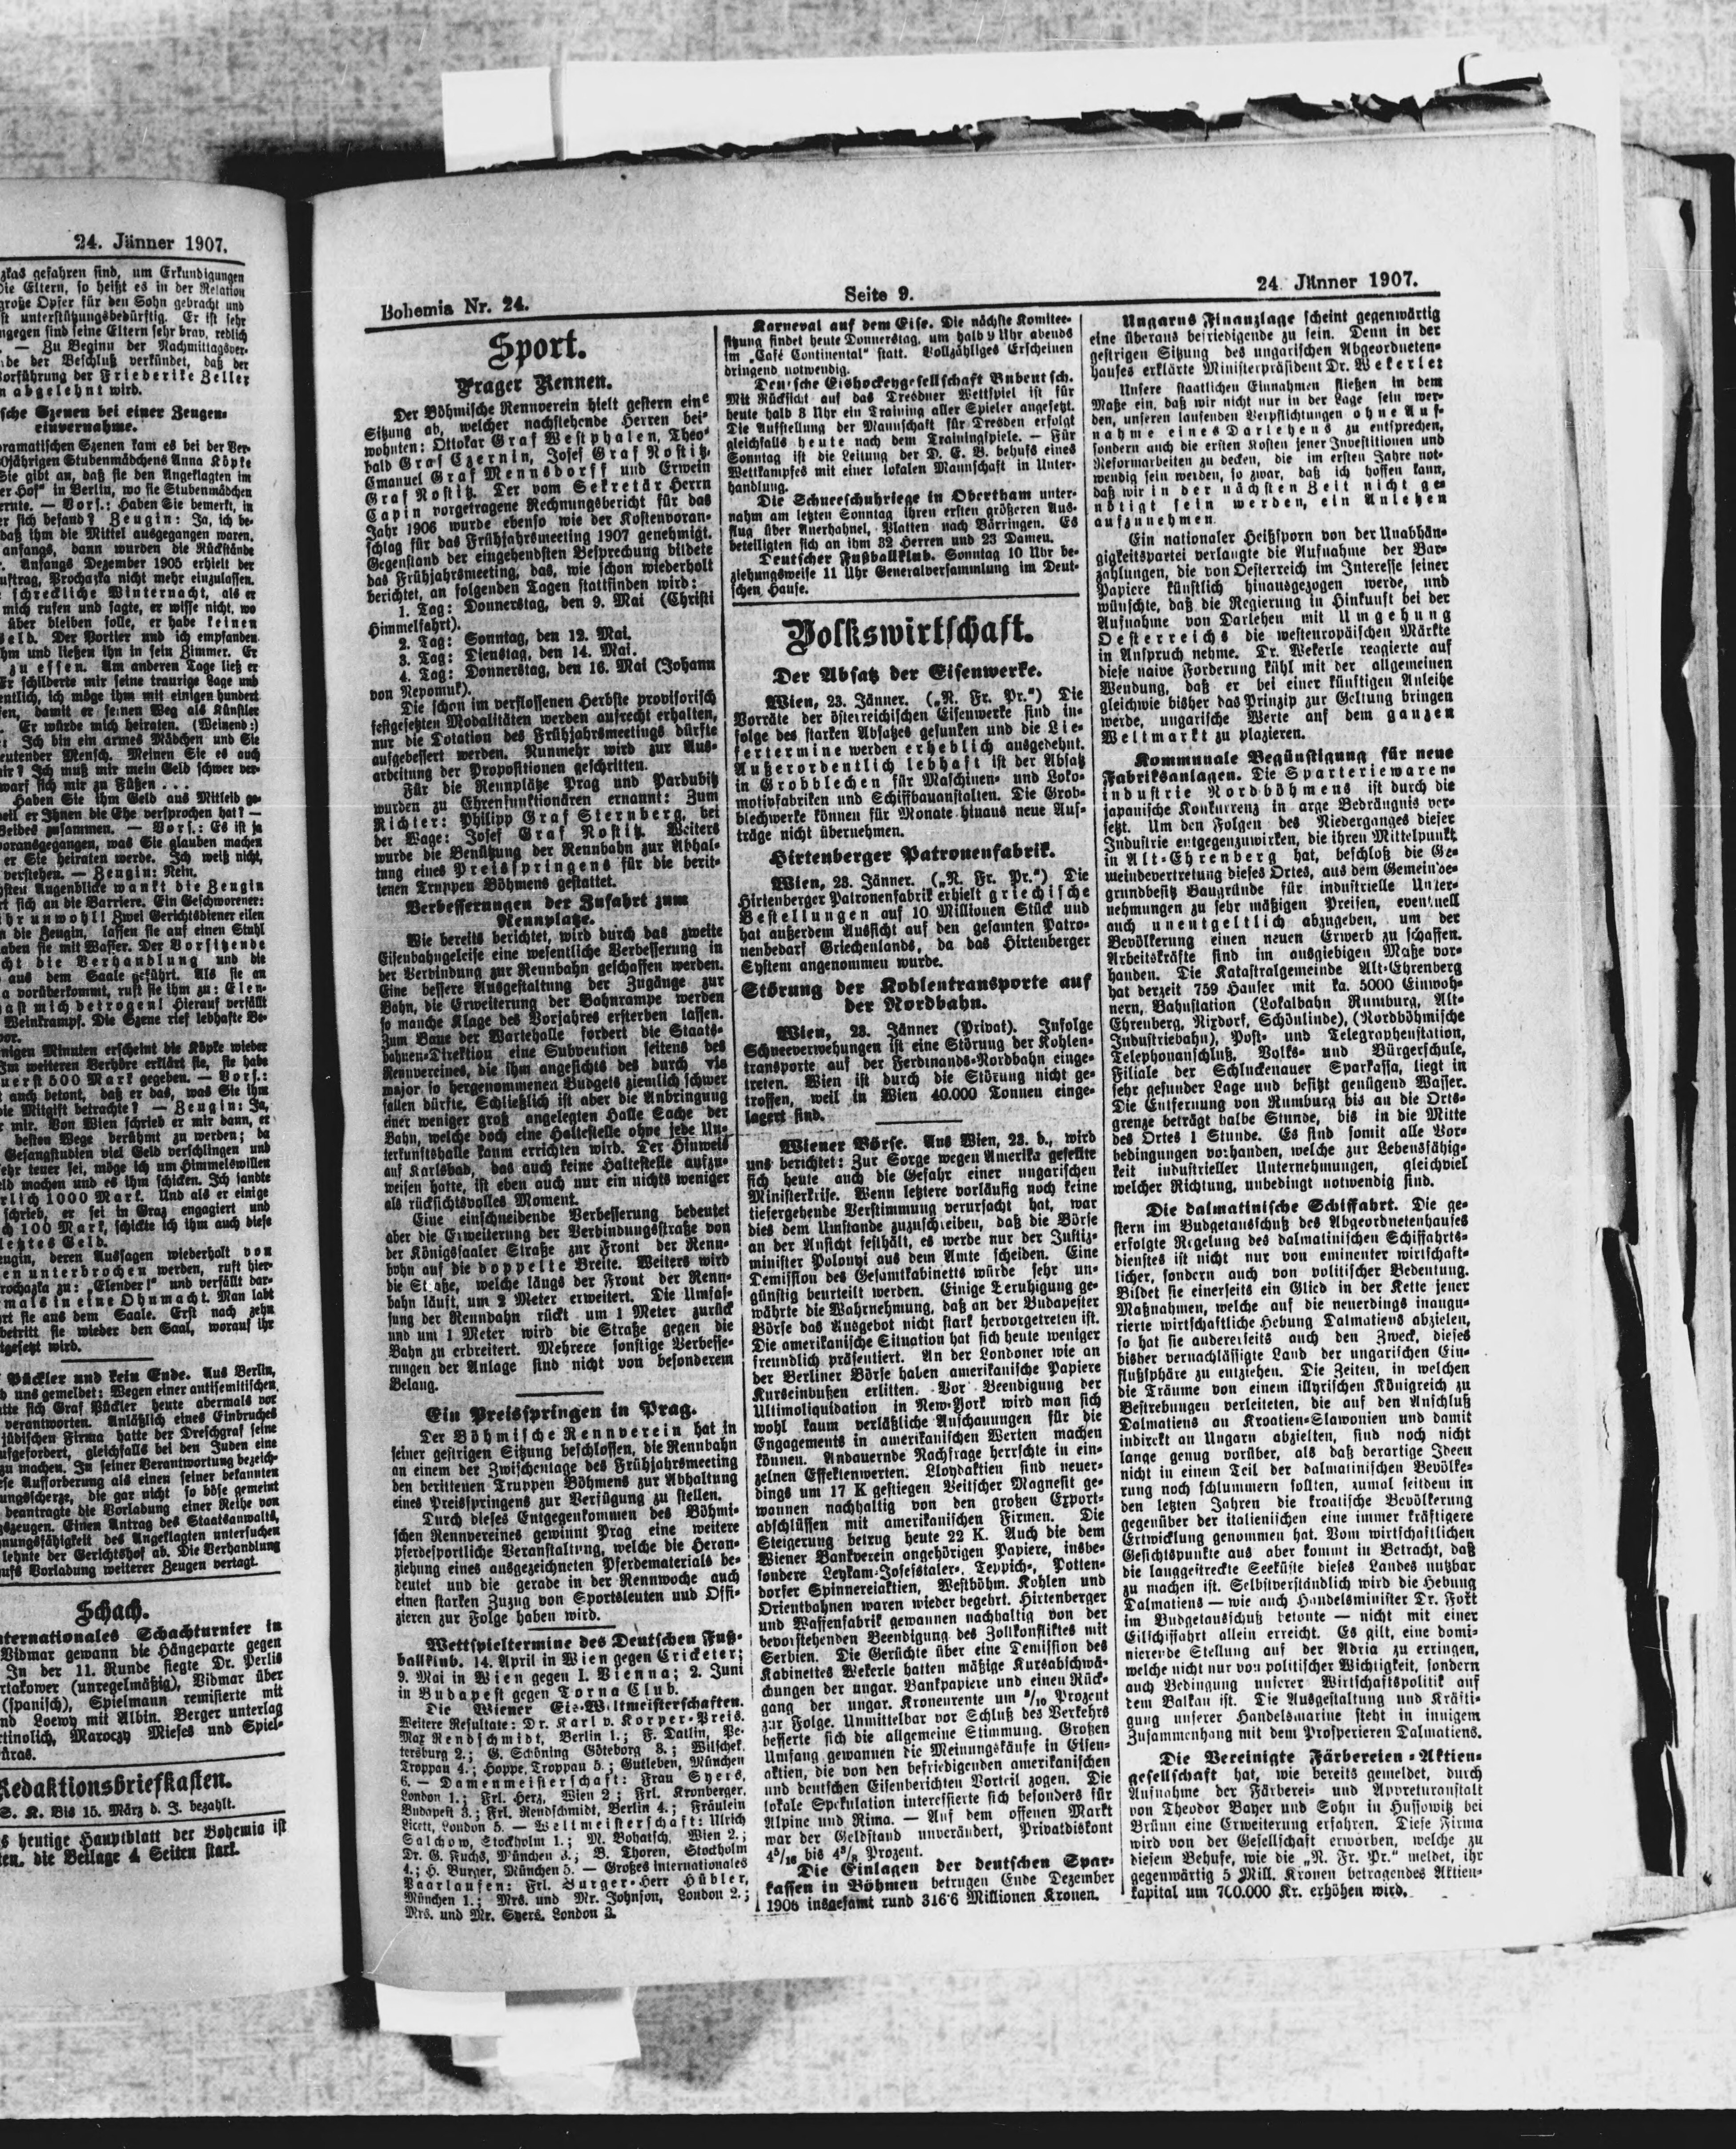 24. Jänner 1907.
zkas gefahren sind, um Erkundigungen
Die Eltern, so heißt es in der Relation
große Opfer für den Sohn gebracht und
st unterstützungsbedürftig. Er ist sehr
ngegen sind seine Eltern sehr brav, redlich
— Zu Beginn der Nachmittagsver-
de der Beschluß verkündet, daß der
Vorführung der Friederike Zeller
n abgelehnt wird.
sche Szenen bei einer Zeugen-
einvernahme.
dramatischen Szenen kam es bei der Ver-
0jährigen Stubenmädchens Anna Köpke
Sie gibt an, daß sie den Angeklagten im
er Hof" in Berlin, wo sie Stubenmädchen
ernte. — Vors.: Haben Sie bemerkt, in
er sich befand? Zeugin: Ja, ich be-
daß ihm die Mittel ausgegangen waren.
anfangs, dann wurden die Rückstände
. Anfangs Dezember 1905 erhielt der
uftrag, Prochaska nicht mehr einzulassen.
schreckliche Winternacht, als er
mich rufen und sagte, er wisse nicht, wo
über bleiben solle, er habe keinen
eld. Der Portier und ich empfanden
hm und ließen ihn in sein Zimmer. Er
zu essen. Am anderen Tage ließ er
Er schilderte mir seine traurige Lage und
entlich, ich möge ihm mit einigen hundert
fen, damit er seinen Weg als Künstler
. Er würde mich heiraten. (Weinend:)
: Ich bin ein armes Mädchen und Sie
eutender Mensch. Meinen Sie es auch
ir? Ich muß mir mein Geld schwer ver-
warf sich mir zu Füßen . . .
Haben Sie ihm Geld aus Mitleid ge-
weil er Ihnen die Ehe versprochen hat? —
Beides zusammen. — Vors.: Es ist ja
vorausgegangen, was Sie glauben machen
er Sie heiraten werde. Ich weiß nicht,
verstehen. — Zeugin: Nein.
hsten Augenblicke wankt die Zeugin
rt sich an die Barriere. Ein Geschworener:
ihr unwohl! Zwei Gerichtsdiener eilen
n die Zeugin, lassen sie auf einen Stuhl
aben sie mit Wasser. Der Vorsitzende
cht die Verhandlung und die
aus dem Saale geführt. Als sie an
a vorüberkommt, ruft sie ihm zu: Elen-
hast mich betrogen! Hierauf verfällt
Weinkrampf. Die Szene rief lebhafte Be-
vor.
nigen Minuten erscheint die Köpke wieder
Im weiteren Verhöre erklärt sie, sie habe
uerst 500 Mark gegeben. — Vors.:
auch betont, daß er das, was Sie ihm
die Mitgift betrachte? — Zeugin: Ja,
r mir. Von Wien schrieb er mir dann, er
besten Wege berühmt zu werden; da
Gesangstudien viel Geld verschlingen und
ehr teuer sei, möge ich um Himmelswillen
eld machen und es ihm schicken. Ich sandte
rlich 1000 Mark. Und als er einige
schrieb, er sei in Graz engagiert und
ch 100 Mark, schickte ich ihm auch diese
letztes Geld.
eugin, deren Aussagen wiederholt von
en unterbrochen werden, ruft hier-
rochazka zu: „Elender!" und verfällt dar-
mals in eine Ohnmacht. Man labt
rt sie aus dem Saale. Erst nach zehn
betritt sie wieder den Saal, worauf ihr
tgesetzt wird.
Pückler und kein Ende. Aus Berlin,
d uns gemeldet: Wegen einer antisemitischen
atte sich Graf Pückler heute abermals vor
verantworten. Anläßlich eines Einbruches
jüdischen Firma hatte der Dreschgraf seine
ufgefordert, gleichfalls bei den Juden eine
zu machen. In seiner Verantwortung bezeich-
ese Aufforderung als einen seiner bekannten
ungsscherze, die gar nicht so böse gemeint
beantragte die Vorladung einer Reihe von
gszeugen. Einen Antrag des Staatsanwalts,
nungsfähigkeit des Angeklagten untersuchen
lehnte der Gerichtshof ab. Die Verhandlung
ufs Vorladung weiterer Zeugen vertagt.
Schach.
nternationales Schachturnier in
Vidmar gewann die Hängeparte gegen
In der 11. Runde siegte Dr. Perlis
rtakower (unregelmäßig), Vidmar über
(spanisch), Spielmann remisierte mit
nd Loewy mit Albin. Berger unterlag
rtinolich, Maroczy Mieses und Spiel-
üras.
Redaktionsbriefkasten.
S. K. Bis 15. März d. J. bezahlt.
s heutige Hauptblatt der Bohemia ist
ten, die Beilage 4 Seiten stark.
Bohemia Nr. 24.
Seite 9.
24. Jänner 1907.
Sport.
Prager Rennen.
Der Böhmische Rennverein hielt gestern eine
Sitzung ab, welcher nachstehende Herren bei-
wohnten: Ottokar Graf Westphalen, Theo-
bald Graf Czernin, Josef Graf Nostitz,
Emanuel Graf Mennsdorff und Erwein
Graf Nostitz. Der vom Sekretär Herrn
Capin vorgetragene Rechnungsbericht für das
Jahr 1906 wurde ebenso wie der Kostenvoran-
schlag für das Frühjahrsmeeting 1907 genehmigt.
Gegenstand der eingehendsten Besprechung bildete
das Frühjahrsmeeting, das, wie schon wiederholt
berichtet, an folgenden Tagen stattfinden wird:
1. Tag: Donnerstag, den 9. Mai (Christi
Himmelfahrt).
2. Tag: Sonntag, den 12. Mai.
3. Tag: Dienstag, den 14. Mai.
4. Tag: Donnerstag, den 16. Mai (Johann
von Nepomuk).
Die schon im verflossenen Herbste provisorisch
festgesetzten Modalitäten werden aufrecht erhalten,
nur die Dotation des Frühjahrsmeetings dürfte
aufgebessert werden. Nunmehr wird zur Aus-
arbeitung der Propositionen geschritten.
Für die Rennplätze Prag und Pardubitz
wurden zu Ehrenfunktionären ernannt: Zum
Richter: Philipp Graf Sternberg, bei
der Wage: Josef Graf Nostitz. Weiters
wurde die Benützung der Rennbahn zur Abhal-
tung eines Preisspringens für die berit-
tenen Truppen Böhmens gestattet.
Verbesserungen der Zufahrt zum
Rennplatze.
Wie bereits berichtet, wird durch das zweite
Eisenbahngeleise eine wesentliche Verbesserung in
der Verbindung zur Rennbahn geschaffen werden.
Eine bessere Ausgestaltung der Zugänge zur
Bahn, die Erweiterung der Bahnrampe werden
so manche Klage des Vorjahres ersterben lassen.
Zum Baue der Wartehalle fordert die Staats-
bahnen-Direktion eine Subvention seitens des
Rennvereines, die ihm angesichts des durch vis
major so hergenommenen Budgets ziemlich schwer
fallen dürfte. Schließlich ist aber die Anbringung
einer weniger groß angelegten Halle Sache der
Bahn, welche doch eine Haltestelle ohne jede Un-
terkunftshalle kaum errichten wird. Der Hinweis
auf Karlsbad, das auch keine Haltestelle aufzu-
weisen hatte, ist eben auch nur ein nichts weniger
als rücksichtsvolles Moment.
Eine einschneidende Verbesserung bedeutet
aber die Erweiterung der Verbindungsstraße von
der Königsaaler Straße zur Front der Renn-
bohn auf die doppelte Breite. Weiters wird
die Straße, welche längs der Front der Renn-
bahn läuft, um 2 Meter erweitert. Die Umfas-
sung der Rennbahn rückt um 1 Meter zurück
und um 1 Meter wird die Straße gegen die
Bahn zu erbreitert. Mehrere sonstige Verbesse-
rungen der Anlage sind nicht von besonderem
Belang.
Ein Preisspringen in Prag.
Der Böhmische Rennverein hat in
seiner gestrigen Sitzung beschlossen, die Rennbahn
an einem der Zwischentage des Frühjahrsmeeting
den berittenen Truppen Böhmens zur Abhaltung
eines Preisspringens zur Verfügung zu stellen.
Durch dieses Entgegenkommen des Böhmi-
schen Rennvereines gewinnt Prag eine weitere
pferdesportliche Veranstaltung, welche die Heran-
ziehung eines ausgezeichneten Pferdematerials be-
deutet und die gerade in der Rennwoche auch
einen starken Zuzug von Sportsleuten und Offi-
zieren zur Folge haben wird.
Wettspieltermine des Deutschen Fuß-
ballklub. 14. April in Wien gegen Cricketer;
9. Mai in Wien gegen I. Vienna; 2. Juni
in Budapest gegen Torna Club.
Die Wiener Eis-Weltmeisterschaften.
Weitere Resultate: Dr. Karl v. Korper-Preis.
Max Rendschmidt, Berlin 1.; F. Datlin, Pe-
tersburg 2.; G. Schöning Göteborg 3.; Wilschek,
Troppau 4.; Hoppe, Troppau 5.; Gutleben, München
6. — Damenmeisterschaft: Frau Syers,
London 1.; Frl. Herz, Wien 2; Frl. Kronberger,
Budapest 3.; Frl. Rendschmidt, Berlin 4.; Fräulein
Licett, London 5. — Weltmeisterschaft: Ulrich
Salchow, Stockholm 1.; M. Bohatsch, Wien 2.;
Dr. G. Fuchs, München 3.; B. Thoren, Stockholm
4.; H. Burger, München 5. — Großes internationales
Paarlaufen: Frl. Burger-Herr Hübler,
München 1.; Mrs. und Mr. Johnson, London 2.;
Mrs. und Mr. Syers, London 3.
Karneval auf dem Eise. Die nächste Komitee-
sitzung findet heute Donnerstag, um halb 9 Uhr abends
im „Café Continental" statt. Vollzähliges Erscheinen
dringend notwendig.
Deutsche Eishockeygesellschaft Bubentsch.
Mit Rücksicht auf das Dresdner Wettspiel ist für
heute halb 8 Uhr ein Training aller Spieler angesetzt.
Die Aufstellung der Mannschaft für Dresden erfolgt
gleichfalls heute nach dem Trainingspiele. — Für
Sonntag ist die Leitung der D. E. B. behufs eines
Wettkampfes mit einer lokalen Mannschaft in Unter-
handlung.
Die Schneeschuhriege in Obertham unter-
nahm am letzten Sonntag ihren ersten größeren Aus-
flug über Auerhahnel, Platten nach Bärringen. Es
beteiligten sich an ihm 32 Herren und 23 Damen.
Deutscher Fußballklub. Sonntag 10 Uhr be-
ziehungsweise 11 Uhr Generalversammlung im Deut-
schen Hause.
Volkswirtschaft.
Der Absatz der Eisenwerke.
Wien, 23. Jänner. („N. Fr. Pr.") Die
Vorräte der österreichischen Eisenwerke sind in-
folge des starken Absatzes gesunken und die Lie-
fertermine werden erheblich ausgedehnt.
Außerordentlich lebhaft ist der Absatz
in Grobblechen für Maschinen- und Loko-
motivfabriken und Schiffbauanstalten. Die Grob-
blechwerke können für Monate hinaus neue Auf-
träge nicht übernehmen.
Hirtenberger Patronenfabrik.
Wien, 23. Jänner. („N. Fr. Pr.") Die
Hirtenberger Patronenfabrik erhielt griechische
Bestellungen auf 10 Millionen Stück und
hat außerdem Aussicht auf den gesamten Patro-
nenbedarf Griechenlands, da das Hirtenberger
System angenommen wurde.
Störung der Kohlentransporte auf
der Nordbahn.
Wien, 23. Jänner (Privat). Infolge
Schneeverwehungen ist eine Störung der Kohlen-
transporte auf der Ferdinands-Nordbahn einge-
treten. Wien ist durch die Störung nicht ge-
troffen, weil in Wien 40.000 Tonnen einge-
lagert sind.
Wiener Börse. Aus Wien, 23. d., wird
uns berichtet: Zur Sorge wegen Amerika gesellte
sich heute auch die Gefahr einer ungarischen
Ministerkrise. Wenn letztere vorläufig noch keine
tiefergehende Verstimmung verursacht hat, war
dies dem Umstande zuzuschreiben, daß die Börse
an der Ansicht festhält, es werde nur der Justiz-
minister Polonyi aus dem Amte scheiden. Eine
Demission des Gesamtkabinetts würde sehr un-
günstig beurteilt werden. Einige Beruhigung ge-
währte die Wahrnehmung, daß an der Budapester
Börse das Ausgebot nicht stark hervorgetreten ist.
Die amerikanische Situation hat sich heute weniger
freundlich präsentiert. An der Londoner wie an
der Berliner Börse haben amerikanische Papiere
Kurseinbußen erlitten. Vor Beendigung der
Ultimoliquidation in New-York wird man sich
wohl kaum verläßliche Anschauungen für die
Engagements in amerikanischen Werten machen
können. Andauernde Nachfrage herrschte in ein-
zelnen Effektenwerten. Lloydaktien sind neuer-
dings um 17 K gestiegen Veitscher Magnesit ge-
wannen nachhaltig von den großen Export-
abschlüssen mit amerikanischen Firmen. Die
Steigerung betrug heute 22 K. Auch die dem
Wiener Bankverein angehörigen Papiere, insbe-
sondere Leykam-Josefstaler-, Teppich-, Potten-
dorfer Spinnereiaktien, Westböhm. Kohlen und
Orientbahnen waren wieder begehrt. Hirtenberger
und Waffenfabrik gewannen nachhaltig von der
bevorstehenden Beendigung des Zollkonfliktes mit
Serbien. Die Gerüchte über eine Demission des
Kabinettes Wekerle hatten mäßige Kursabschwä-
chungen der ungar. Bankpapiere und einen Rück-
gang der ungar. Kronenrente um /10 Prozent
zur Folge. Unmittelbar vor Schluß des Verkehrs
besserte sich die allgemeine Stimmung. Großen
Umfang gewannen die Meinungskäufe in Eisen-
aktien, die von den befriedigenden amerikanischen
und deutschen Eisenberichten Vorteil zogen. Die
lokale Spekulation interessierte sich besonders für
Alpine und Rima. — Auf dem offenen Markt
war der Geldstand unverändert, Privatdiskont
4⁵/₁₆ bis 4³/₈ Prozent.
Die Einlagen der deutschen Spar-
kassen in Böhmen betrugen Ende Dezember
1906 insgesamt rund 316·6 Millionen Kronen.
Ungarns Finanzlage scheint gegenwärtig
eine überaus befriedigende zu sein. Denn in der
gestrigen Sitzung des ungarischen Abgeordneten-
hauses erklärte Ministerpräsident Dr. Wekerle:
Unsere staatlichen Einnahmen fließen in dem
Maße ein, daß wir nicht nur in der Lage sein wer-
den, unseren laufenden Verpflichtungen ohne Auf-
nahme eines Darlehens zu entsprechen,
sondern auch die ersten Kosten jener Investitionen und
Reformarbeiten zu decken, die im ersten Jahre not-
wendig sein werden, so zwar, daß ich hoffen kann,
daß wir in der nächsten Zeit nicht ge-
nötigt sein werden, ein Anlehen
aufzunehmen.
Ein nationaler Heißsporn von der Unabhän-
gigkeitspartei verlangte die Aufnahme der Bar-
zahlungen, die von Oesterreich im Interesse seiner
Papiere künstlich hinausgezogen werde, und
wünschte, daß die Regierung in Hinkunft bei der
Aufnahme von Darlehen mit Umgehung
Oesterreichs die westeuropäischen Märkte
in Anspruch nehme. Dr. Wekerle reagierte auf
diese naive Forderung kühl mit der allgemeinen
Wendung, daß er bei einer künftigen Anleihe
gleichwie bisher das Prinzip zur Geltung bringen
werde, ungarische Werte auf dem ganzen
Weltmarkt zu plazieren.
Kommunale Begünstigung für neue
Fabriksanlagen. Die Sparteriewaren-
industrie Nordböhmens ist durch die
japanische Konkurrenz in arge Bedrängnis ver-
setzt. Um den Folgen des Niederganges dieser
Industrie entgegenzuwirken, die ihren Mittelpunkt
in Alt-Ehrenberg hat, beschloß die Ge-
meindevertretung dieses Ortes, aus dem Gemeinde-
grundbesitz Baugründe für industrielle Unter-
nehmungen zu sehr mäßigen Preisen, eventuell
auch unentgeltlich abzugeben, um der
Bevölkerung einen neuen Erwerb zu schaffen.
Arbeitskräfte sind im ausgiebigen Maße vor-
handen. Die Katastralgemeinde Alt-Ehrenberg
hat derzeit 759 Häuser mit ka. 5000 Einwoh-
nern, Bahnstation (Lokalbahn Rumburg, Alt-
Ehrenberg, Nixdorf, Schönlinde), (Nordböhmische
Industriebahn), Post- und Telegraphenstation,
Telephonanschluß, Volks- und Bürgerschule,
Filiale der Schluckenauer Sparkassa, liegt in
sehr gesunder Lage und besitzt genügend Wasser.
Die Entfernung von Rumburg bis an die Orts-
grenze beträgt halbe Stunde, bis in die Mitte
des Ortes 1 Stunde. Es sind somit alle Vor-
bedingungen vorhanden, welche zur Lebensfähig-
keit industrieller Unternehmungen, gleichviel
welcher Richtung, unbedingt notwendig sind.
Die dalmatinische Schiffahrt. Die ge-
stern im Budgetausschuß des Abgeordnetenhauses
erfolgte Regelung des dalmatinischen Schiffahrts-
dienstes ist nicht nur von eminenter wirtschaft-
licher, sondern auch von politischer Bedeutung.
Bildet sie einerseits ein Glied in der Kette jener
Maßnahmen, welche auf die neuerdings inaugu-
rierte wirtschaftliche Hebung Dalmatiens abzielen,
so hat sie andererseits auch den Zweck, dieses
bisher vernachlässigte Land der ungarischen Ein-
flußsphäre zu entziehen. Die Zeiten, in welchen
die Träume von einem illyrischen Königreich zu
Bestrebungen verleiteten, die auf den Anschluß
Dalmatiens an Kroatien-Slawonien und damit
indirekt an Ungarn abzielten, sind noch nicht
lange genug vorüber, als daß derartige Ideen
nicht in einem Teil der dalmatinischen Bevölke-
rung noch schlummern sollten, zumal seitdem in
den letzten Jahren die kroatische Bevölkerung
gegenüber der italienischen eine immer kräftigere
Entwicklung genommen hat. Vom wirtschaftlichen
Gesichtspunkte aus aber kommt in Betracht, daß
die langgestreckte Seeküste dieses Landes nutzbar
zu machen ist. Selbstverständlich wird die Hebung
Dalmatiens — wie auch Handelsminister Dr. Fort
im Budgetausschuß betonte — nicht mit einer
Eilschiffahrt allein erreicht. Es gilt, eine domi-
nierende Stellung auf der Adria zu erringen,
welche nicht nur von politischer Wichtigkeit, sondern
auch Bedingung unserer Wirtschaftspolitik auf
dem Balkan ist. Die Ausgestaltung und Kräfti-
gung unserer Handelsmarine steht in innigem
Zusammenhang mit dem Prosperieren Dalmatiens.
Die Vereinigte Färbereien-Aktien-
gesellschaft hat, wie bereits gemeldet, durch
Aufnahme der Färberei- und Appreturanstalt
von Theodor Bayer und Sohn in Hussowitz bei
Brünn eine Erweiterung erfahren. Diese Firma
wird von der Gesellschaft erworben, welche zu
diesem Behufe, wie die „N. Fr. Pr." meldet, ihr
gegenwärtig 5 Mill. Kronen betragendes Aktien-
kapital um 700.000 Kr. erhöhen wird.